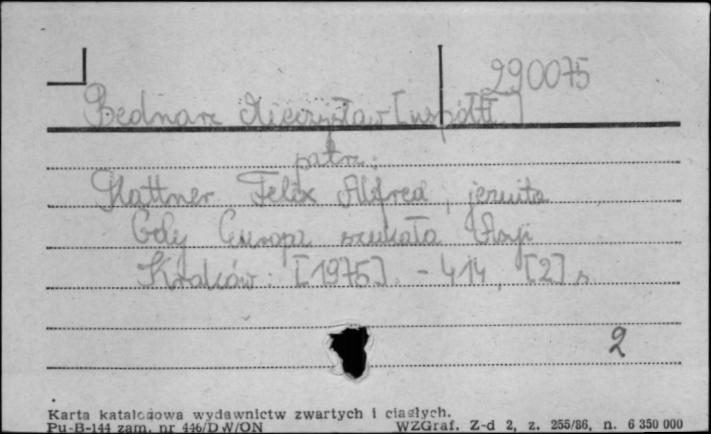 290075
Bednarz Mieczysław [współtł.]
patrz:
Plattner Felix Alfred, jezuita
Gdy Europa szukała Azji
Kraków: [1975]. - 414, [2] s.
2
Karta katalogowa wydawnictw zwartych i ciągłych.
Pu-B-144 zam. nr 446/DW/ON WZGraf. Z-d 2, z. 255/86, n. 6 350 000